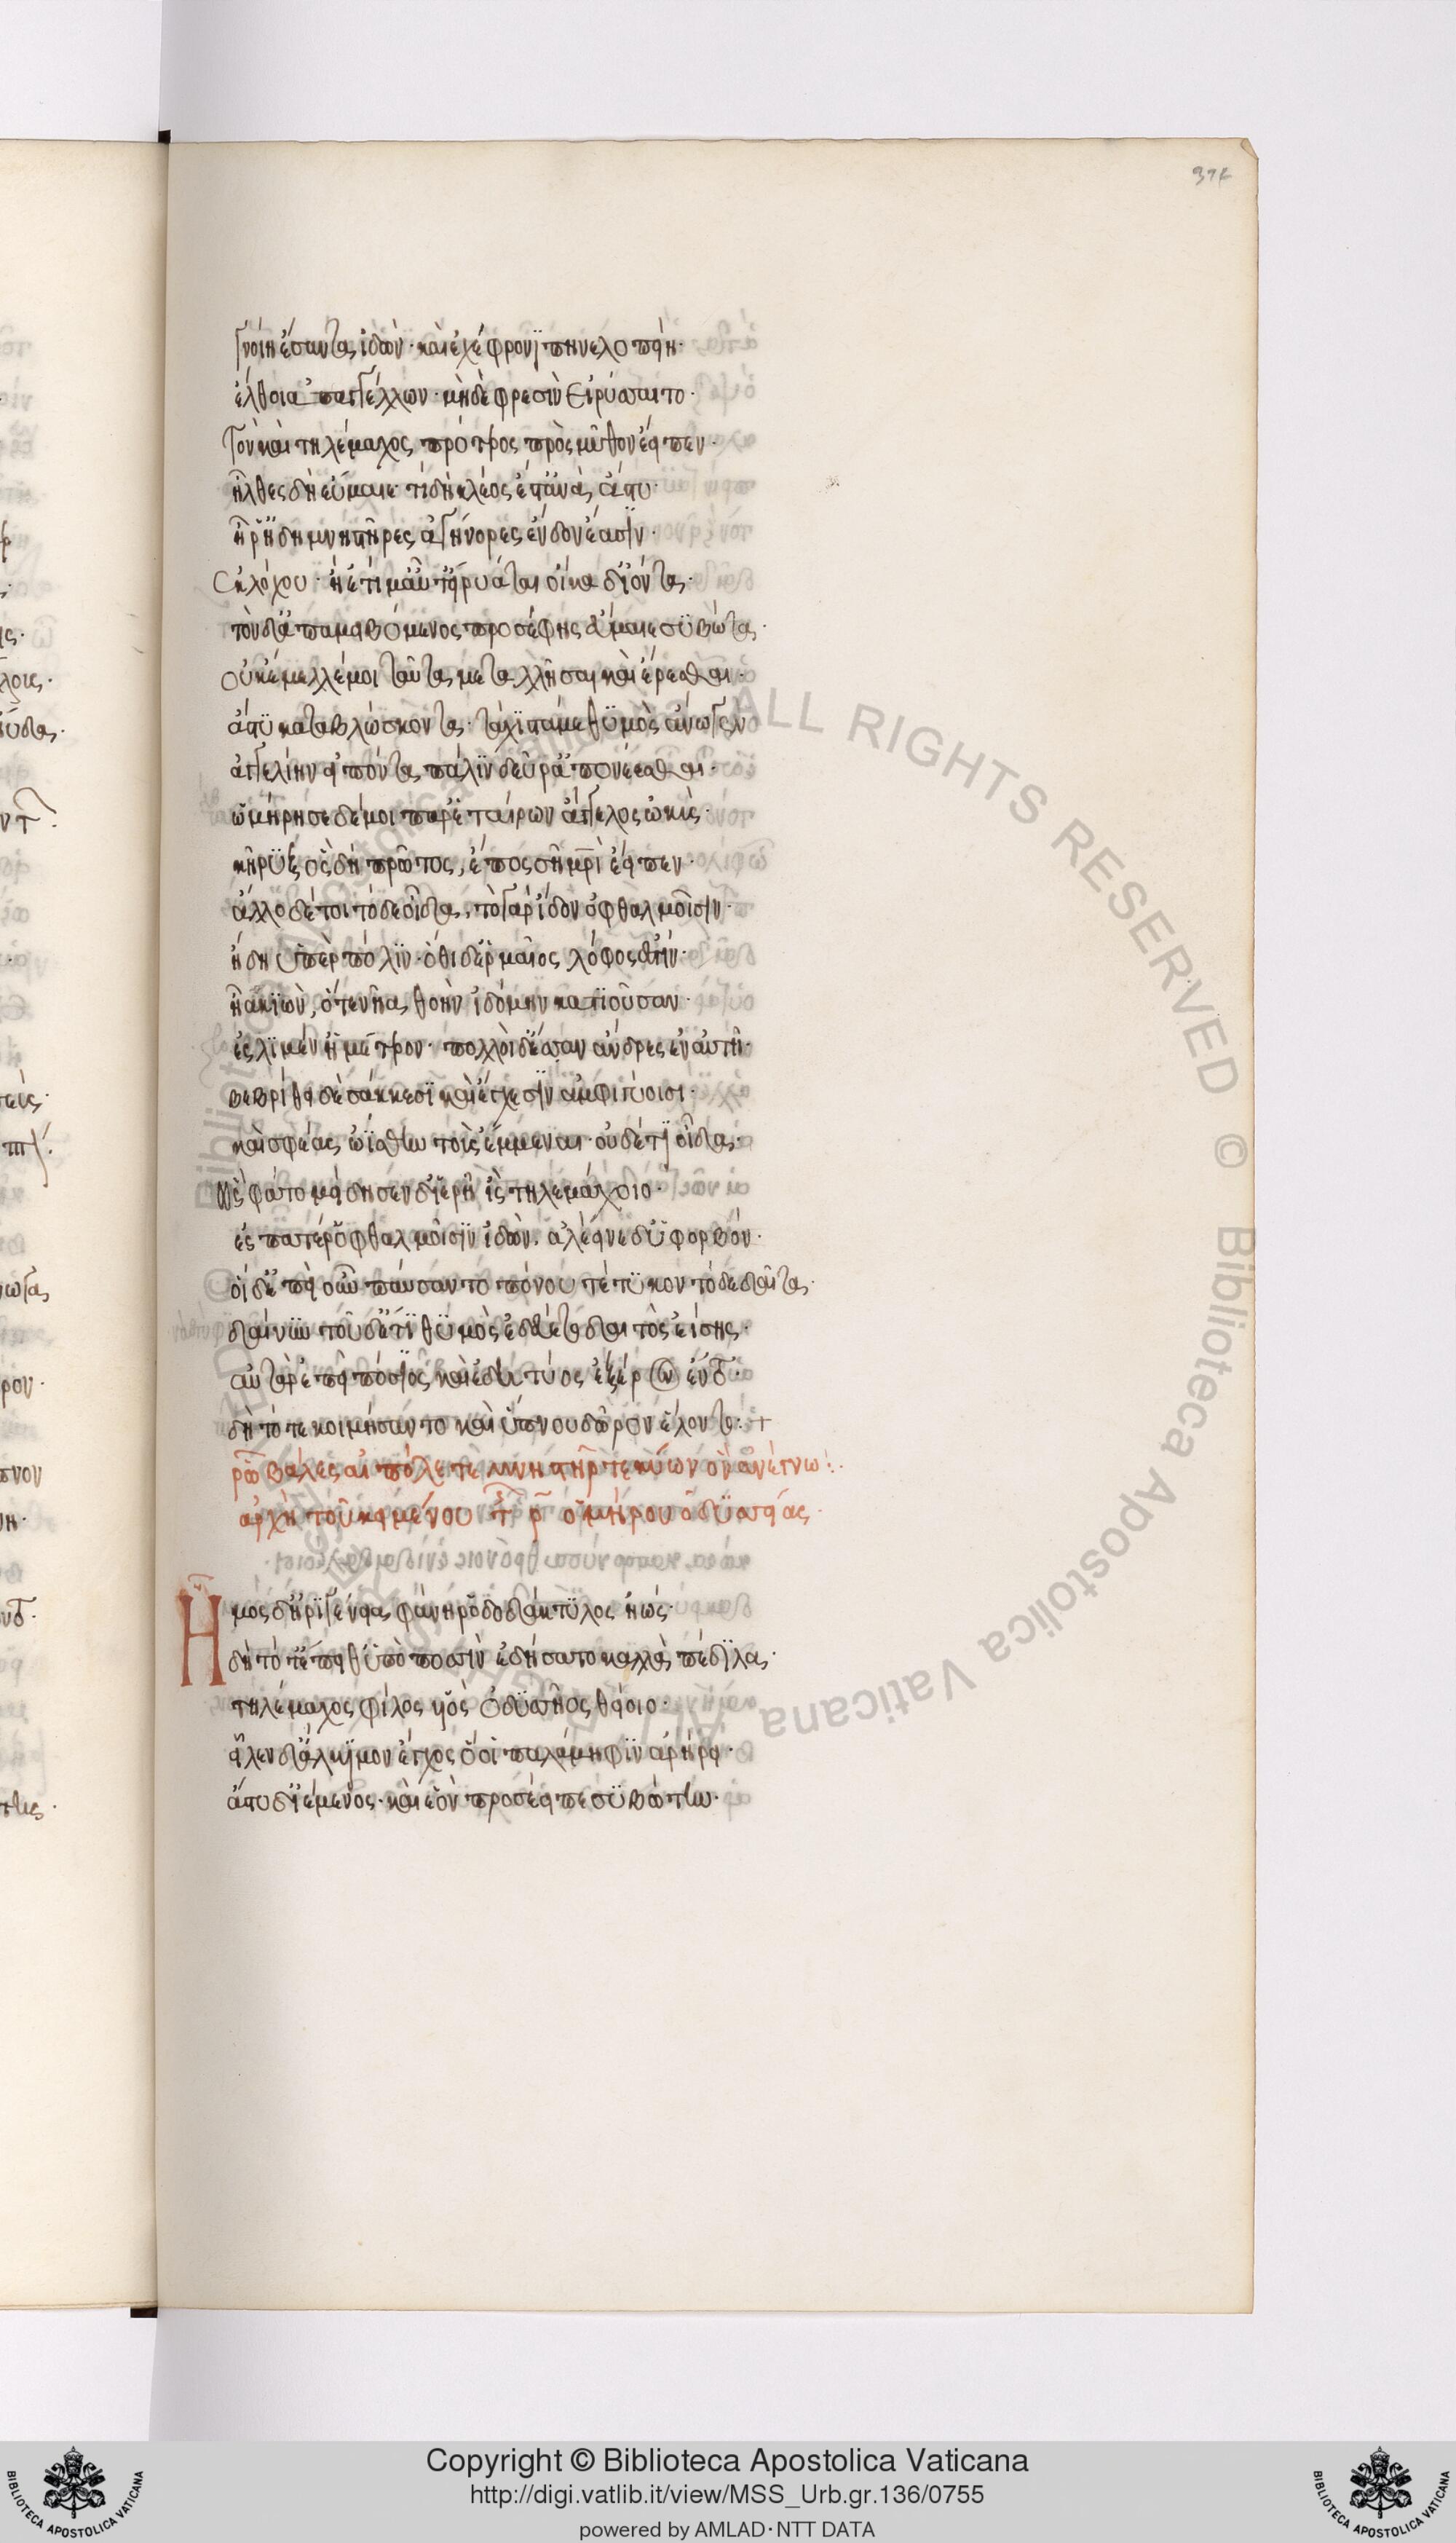 374
γνοίη ἐσάντα ἰδών· καὶ ἐχέφρονϊ πηνελοπείη·
ἔλθοι ἀπαγγέλλων· μηδὲ φρεσὶν εἰρύσαιτο·
τὸν καὶ τηλέμαχος πρότερος πρὸς μῦθον ἔειπεν·
ἦλθες δὴ εὔμαιε· τί δὴ κλέος ἔστ' ἀνὰ ἄστυ·
ἦ ῥ' ἤδη μνηστῆρες ἀγήνορες ἔνδον ἔασϊν·
ἐκ λόχου· ἢ ἔτι μ' αὖτ' εἰρύαται οἴκαδ' ϊόντα·
τὸν δ' ἀπαμειβόμενος προσέφης εὔμαιε συβῶτα·
οὐκ ἔμελλέ μοι ταῦτα μεταλλῆσαι καὶ ἔρεσθαι·
ἄστυ καταβλώσκοντα· τάχιστά με θϋμὸς ἀνώγειν
ἀγγελίην εἰπόντα πάλϊν δεῦρ' ἀπονέεσθαι·
ὡμήρησε δέ μοι παρ' ἑταίρων ἄγγελος ὠκύς·
κῆρυξ ὃς δὴ πρῶτος, ἔπος σῇ μητρὶ ἔειπεν·
ἄλλο δέ τοι τόδε οἶδα, τὸ γὰρ ἴδον ὀφθαλμοῖσϊν·
ἤδη ὑπὲρ πόλϊν· ὅθι δ' ἕρμαιος λόφος ἐστίν·
ἦα κϊών, ὅτε νῆα θοὴν ἰδόμην κατϊοῦσαν·
ἐς λϊμέν' ἡμέτερον· πολλοὶ δ' ἔσαν ἄνδρες ἐν αὐτῇ·
βεβρίθει δὲ σάκεσϊ καὶ ἔγχεσϊν ἀμφιγύοισι·
καὶ σφέας ὠΐσθην τοὺς ἔμμεναι· οὐδέ τϊ οἶδα·
ὣς φάτο μείδησεν δ' ϊερὴ ῒς τηλεμάχοιο·
ἐς πατέρ' ὀφθαλμοῖσϊν ἰδών· ἀλέεινε δ' ὑφορβόν·
οἱ δ' ἐπεὶ οὖν παύσαντο πόνου τέτϋκοντό τε δαῖτα·
δαίνυντ' οὐδέ τϊ θϋμὸς ἐδεύετο δαιτὸς ἐΐσης·
αὐτὰρ ἐπεὶ πόσϊος καὶ ἐδητύος ἐξ ἔρον ἕντο·
δὴ τότε κοιμήσαντο καὶ ὕπνου δῶρον ἕλοντο: +
ἀρχὴ τοῦ κειμένου τῆς ρ ὁμήρου ὀδυσσείας·
Ἦμος δ' ἠρϊγένεια φάνη ῥοδοδάκτϋλος ἠώς·
δὴ τότ' ἔπειθ' ὑπὸ ποσσὶν ἐδήσατο καλλὰ πέδιλα·
τηλέμαχος φίλος υἱὸς ὀδυσσῆος θείοιο·
εἵλεν δ' ἄλκϊμον ἔγχος ὅ οἱ παλάμηφϊν ἀρήρει·
ἄστυ δ' ϊέμενος· καὶ ἑὸν προσέειπε συβώτην·
© Biblioteca Apostolica Vaticana ALL RIGHTS RESERVED © Biblioteca Apostolica Vaticana
Copyright © Biblioteca Apostolica Vaticana
http://digi.vatlib.it/view/MSS_Urb.gr.136/0755
powered by AMLAD·NTT DATA
BIBLIOTECA APOSTOLICA VATICANA
BIBLIOTECA APOSTOLICA VATICANA